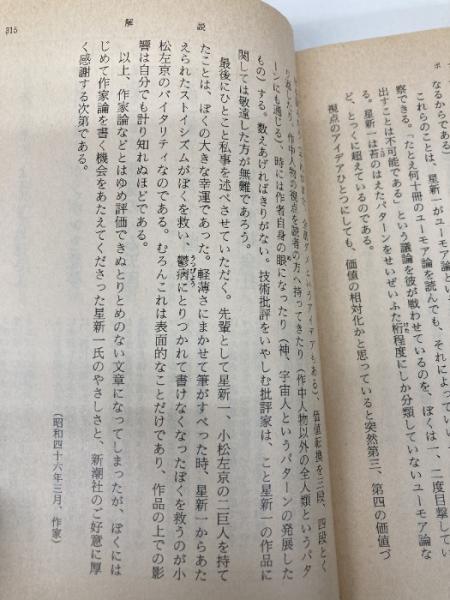 ホ
なるからである
これらのことは、星新一がユーモア論
察できる。「たとえ何十冊のユーモア論を読んでも、それによってい
すことは不可能である」という議論を彼が戦わせているのを、ぼくは一、二度目撃してい
る。星新一は苔のはえたパターンをせいぜいふた桁程度にしか分類していないユーモア論な
ど、とっくに超えているのである。
視点のアイデアひとつにしても、価値の相対化かと思っていると突然第三、第四の価値づ
315
解説
というアイデアもある)、価値転換を三段、四段とく
り返したり、作中人物の視点を読者の方へ持ってきたり(作中人物以外の全人類というパタ
ーンにも通じる)、時には作者自身の眼になったり(神、宇宙人というパターンの発展した
もの)する。数えあげればきりがない。技術批評をいやしむ批評家は、こと星新一の作品に
関しては敬遠した方が無難であろう。
最後にひとこと私事を述べさせていただく。先輩として星新一、小松左京の二巨人を持て
たことは、ぼくの大きな幸運であった。軽薄さにまかせて筆がすべった時、星新一からあた
えられたストイシズムがぼくを救い、鬱病にとりつかれて書けなくなったぼくを救うのが小
松左京のバイタリティなのである。むろんこれは表面的なことだけであり、作品の上での影
響は自分でも計り知れぬほどである。
以上、作家論などとはゆめ評価できぬとりとめのない文章になってしまったが、ぼくには
じめて作家論を書く機会をあたえてくださった星新一氏のやさしさと、新潮社のご好意に厚
く感謝する次第である。
(昭和四十六年三月、作家)